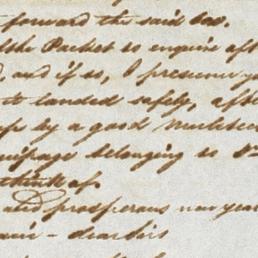 forward the said Box.
the Packet to enquire aft
, and if so, I presume yo
to landed safely, afte
by a good
uipage belonging to
think of.
and prosperous new year
dear Sir